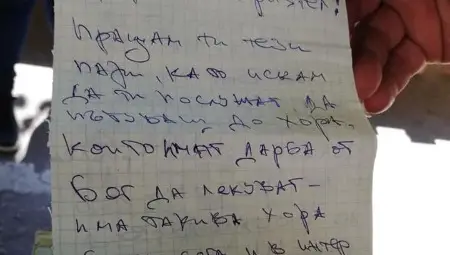 приятел!
Пращам ти тези
пари, като искам
да ти послужат да
пътуваш до хора,
които имат дарба от
Бог да лекуват –
има такива хора
и в интер